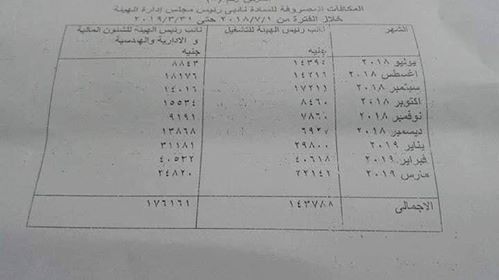 المكافآت المنصرفة للسادة نائبى رئيس مجلس إدارة الهيئة
خلال الفترة من ٢٠١٨/٧/١ حتى ٢٠١٩/٣/٣١
الشهر نائب رئيس الهيئة للتشغيل نائب رئيس الهيئة للشئون المالية
و الادارية والهندسية
جنيه جنيه
يوليو ٢٠١٨ ١٤٣٩٤ ٨٨٤٣
اغسطس ٢٠١٨ ١٤٢١١ ١٨١٧٦
سبتمبر ٢٠١٨ ١٧٢١١ ١٤٠١٦
اكتوبر ٢٠١٨ ٨٤٦٠ ١٥٥٣٤
نوفمبر ٢٠١٨ ٧٨٦٠ ٩١٩١
ديسمبر ٢٠١٨ ١٣٨٦٨
يناير ٢٠١٩ ٢٩٨٠٠ ٣١١٨١
فبراير ٢٠١٩ ٤٠٦١٨ ٤٠٥٣٢
مارس ٢٠١٩ ٢٤٨٢٠
الاجمالى ١٧٦١٦١